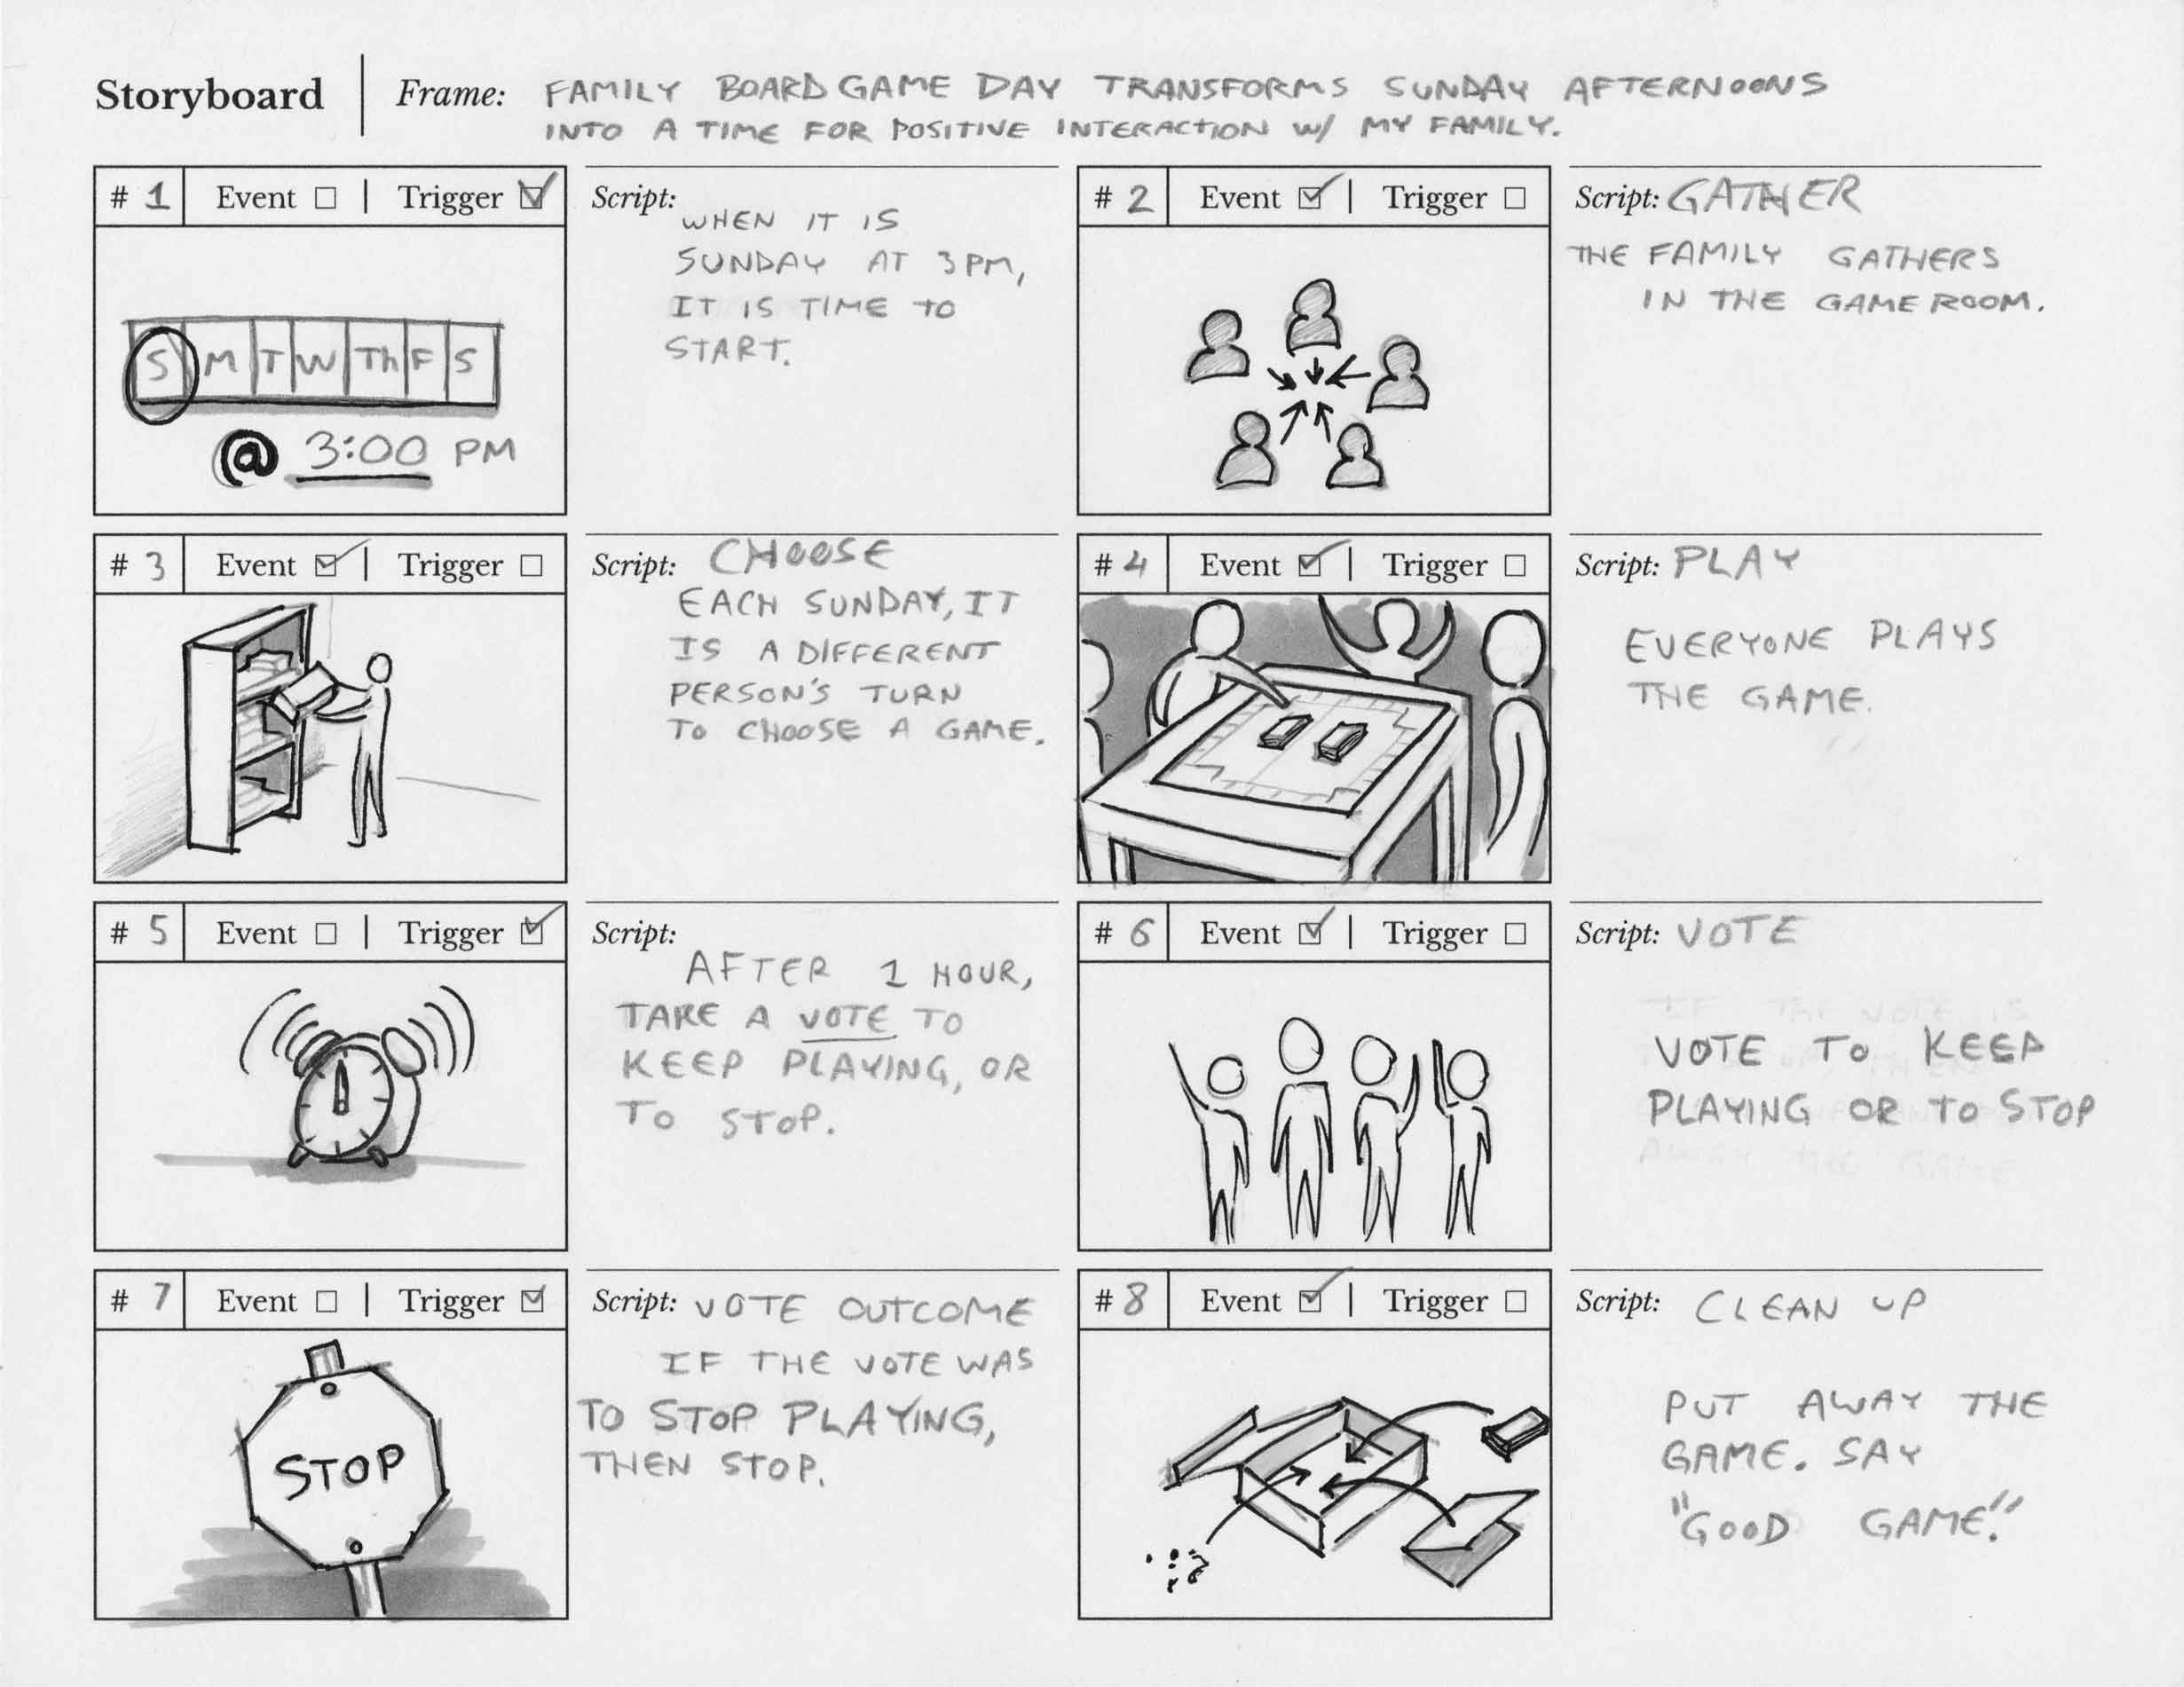 Storyboard | Frame: FAMILY BOARD GAME DAY TRANSFORMS SUNDAY AFTERNOONS
INTO A TIME FOR POSITIVE INTERACTION W/ MY FAMILY.
# 1 Event | Trigger
S M T W Th F S
@ 3:00 PM
Script:
WHEN IT IS
SUNDAY AT 3PM,
IT IS TIME TO
START.
# 2 Event | Trigger
Script: GATHER
THE FAMILY GATHERS
IN THE GAME ROOM.
# 3 Event | Trigger
Script: CHOOSE
EACH SUNDAY, IT
IS A DIFFERENT
PERSON'S TURN
TO CHOOSE A GAME.
# 4 Event | Trigger
Script: PLAY
EVERYONE PLAYS
THE GAME.
# 5 Event | Trigger
Script:
AFTER 1 HOUR,
TAKE A VOTE TO
KEEP PLAYING, OR
TO STOP.
# 6 Event | Trigger
Script: VOTE
VOTE TO KEEP
PLAYING OR TO STOP
# 7 Event | Trigger
STOP
Script: VOTE OUTCOME
IF THE VOTE WAS
TO STOP PLAYING,
THEN STOP.
# 8 Event | Trigger
Script: CLEAN UP
PUT AWAY THE
GAME. SAY
"GOOD GAME."